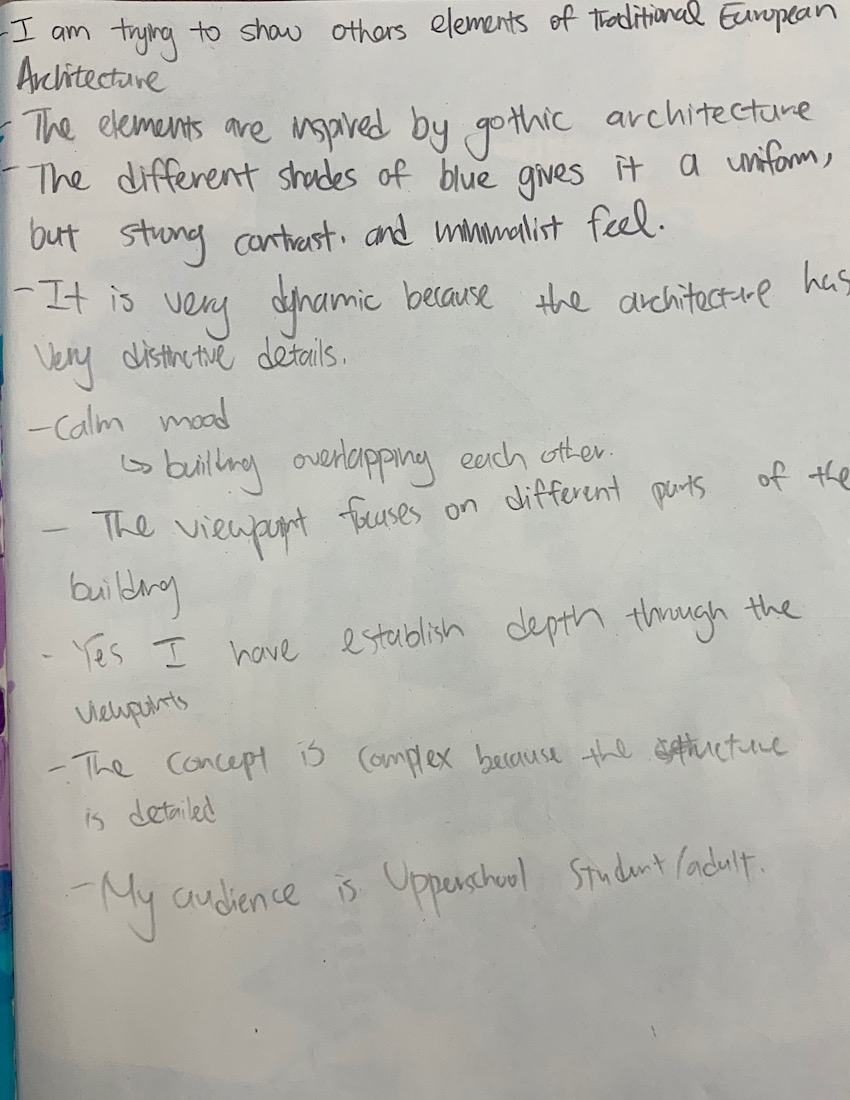 - I am trying to show others elements of traditional European
Architecture
- The elements are inspired by gothic architecture
- The different shades of blue gives it a uniform,
but strong contrast. and minimalist feel.
- It is very dynamic because the architecture has
very distinctive details.
- Calm mood
↳ building overlapping each other.
- The viewpoint focuses on different parts of the
building
- Yes I have establish depth through the
viewpoints
- The concept is complex because the structure
is detailed
- My audience is Upperschool Student/adult.